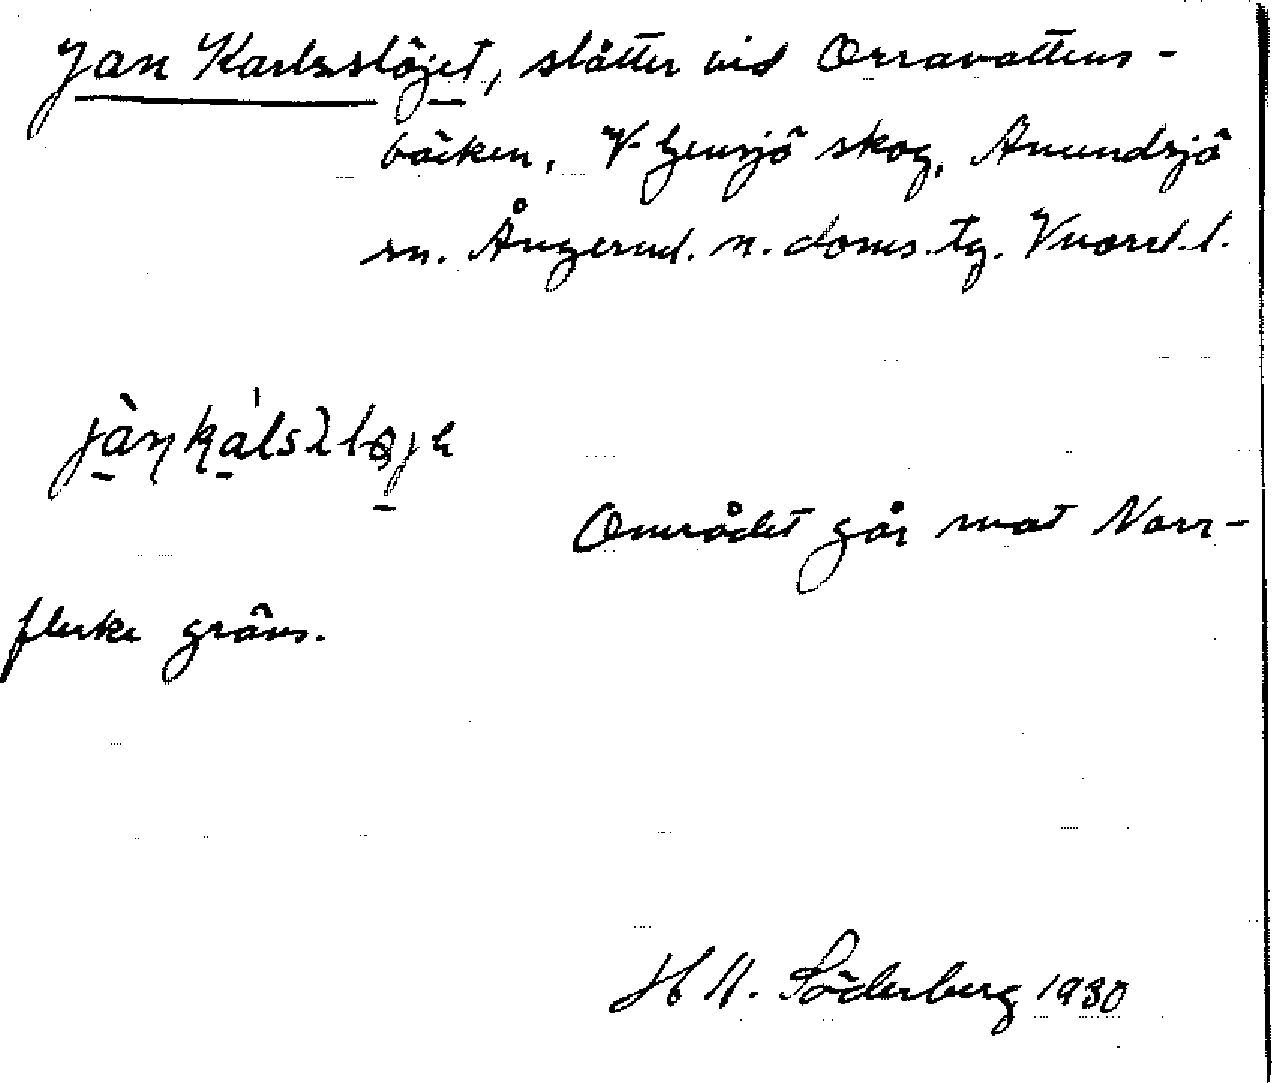 Jan Karlsslöjet, slåtter vid Orravattens-
bäcken, V Gensjö skog, Anundsjö
sn. Ångerml. n. doms. tg. Västerb. l.
Området går mot Norr-
flärke gräns.
H M. Söderberg 1930